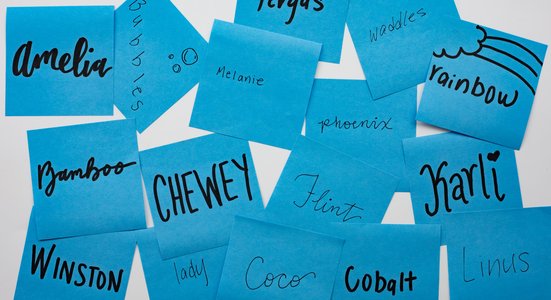 Fergus
waddles
Amelia
Bubbles
Melanie
rainbow
phoenix
Bamboo
CHEWEY
Flint
Karli
WINSTON
lady
Coco
Cobalt
Linus